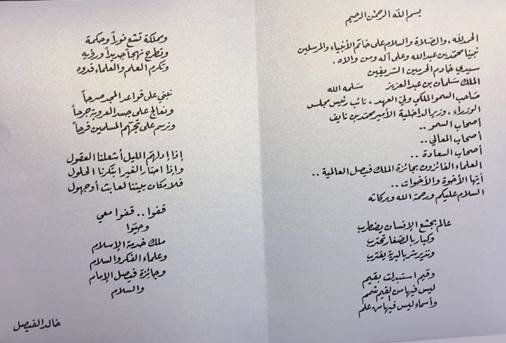 بسم الله الرحمن الرحيم
الحمد لله ، والصلاة والسلام على خاتم الأنبياء والمرسلين
نبينا محمد بن عبد الله وعلى آله ومن والاه .
سيدي خادم الحرمين الشريفين
الملك سلمان بن عبد العزيز سلمه الله
صاحب السمو الملكي ولي العهد ، نائب رئيس مجلس
الوزراء ، وزير الداخلية الأمير محمد بن نايف
أصحاب السمو ..
أصحاب المعالي ..
أصحاب السعادة ..
العلماء الفائزون بجائزة الملك فيصل العالمية ..
أيها الأخوة والأخوات ..
السلام عليكم ورحمة الله وبركاته
عالم بجشع الإنسان يضطرب
وكبار بالصغار تحترب
ونذير شر بالبرية يقترب
وقيم استبدلت بقيم
ليس فيها من القيم شمم
وأسماء ليس فيها من علم
ومملكة تشع نوراً وحكمة
وتطرح نهجاً جديداً ورؤية
وتكرم العلم والعلماء قدوه
نبني على قواعد المجد صرحاً
ونعالج على جسد العروبة جرحاً
ونرسم على تجهّم المسلمين فرحاً
إذا ادلهمّ الليل أشعلنا العقول
وإذا احتار الغير ابتكرنا الحلول
فلا مكان بيننا لعابث أو جهول
قفوا .. قفوا معي
وحيّوا
ملك خدمة الإسلام
وعلماء الفكر والسلام
وجائزة فيصل الإمام
والسلام
خالد الفيصل